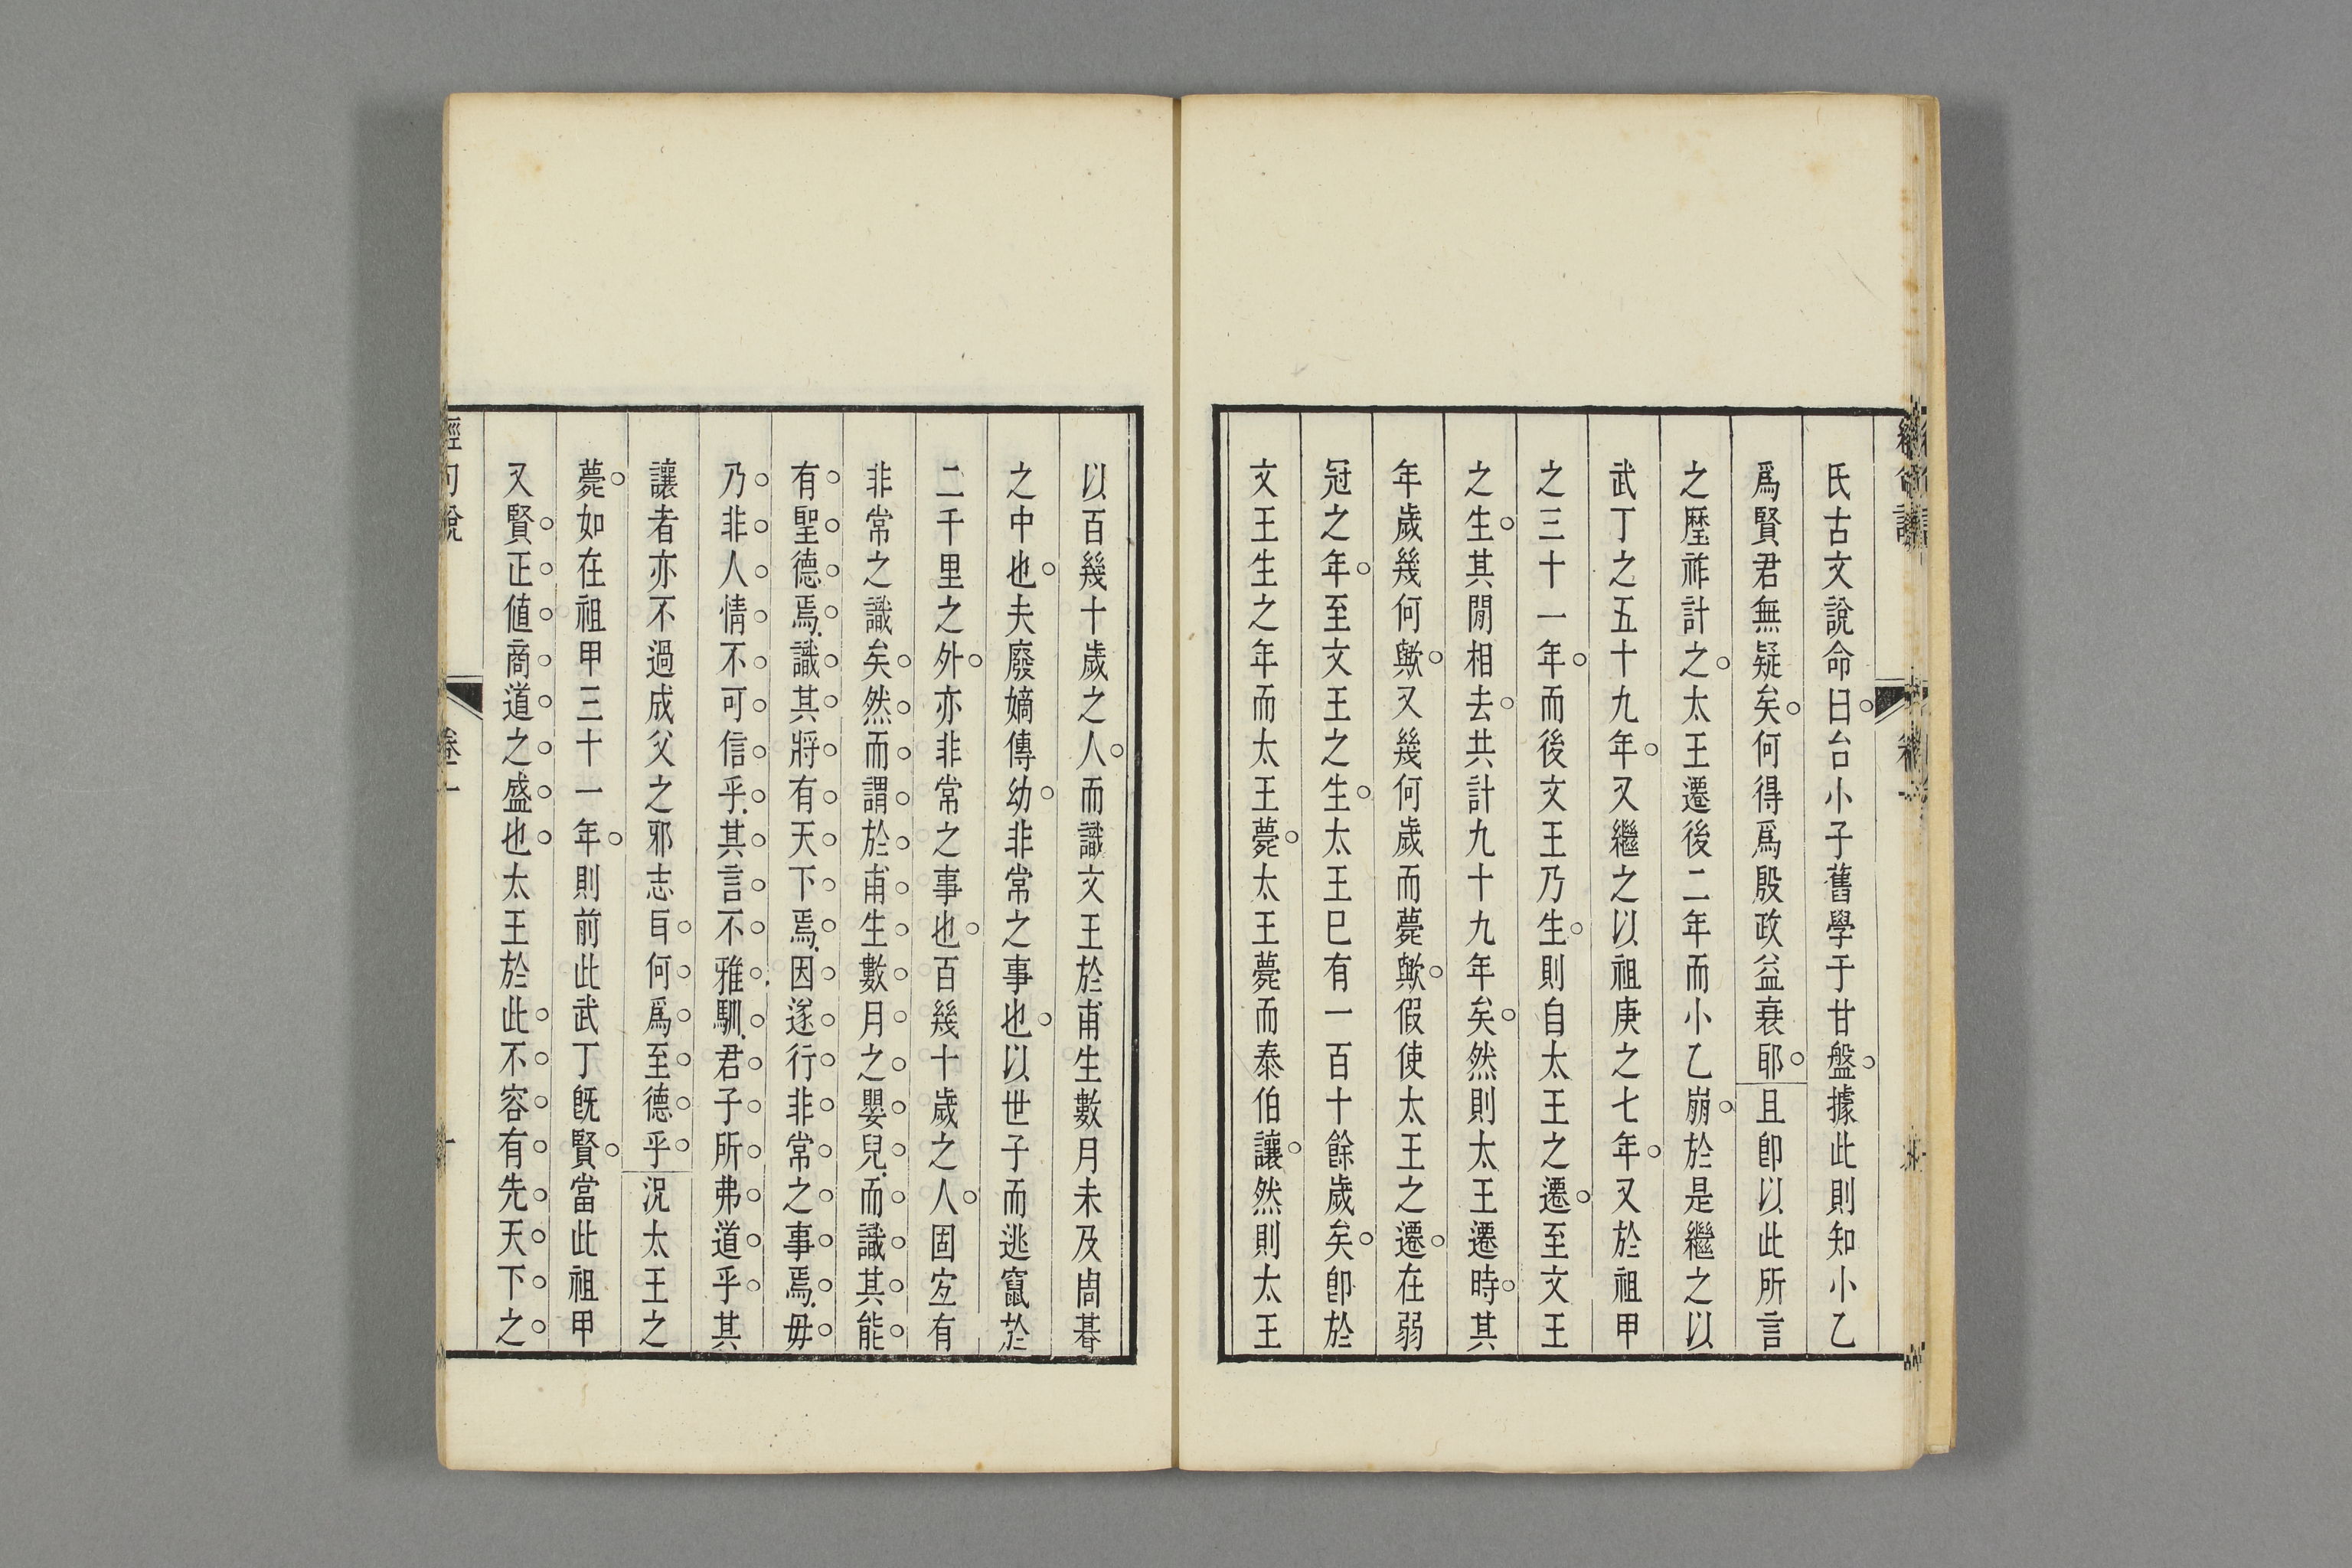 氏古文說命曰台小子舊學于甘盤據此則知小乙
爲賢君無疑矣何得爲殷政益衰耶且卽以此所言
之歷祚計之太王遷後二年而小乙崩於是繼之以
武丁之五十九年又繼之以祖庚之七年又於祖甲
之三十一年而後文王乃生則自太王之遷至文王
之生其閒相去共計九十九年矣然則太王遷時其
年歲幾何歟又幾何歲而薨歟假使太王之遷在弱
冠之年至文王之生太王巳有一百十餘歲矣卽於
文王生之年而太王薨太王薨而泰伯讓然則太王
以百幾十歲之人而識文王於甫生數月未及周朞
之中也夫廢嫡傳幼非常之事也以世子而逃竄於
二千里之外亦非常之事也百幾十歲之人固宐有
非常之識矣然而謂於甫生數月之嬰兒而識其能
有聖德焉識其將有天下焉因遂行非常之事焉毋
乃非人情不可信乎其言不雅馴君子所弗道乎其
讓者亦不過成父之邪志耳何爲至德乎況太王之
薨如在祖甲三十一年則前此武丁旣賢當此祖甲
又賢正値商道之盛也太王於此不容有先天下之
經句說 卷一 十